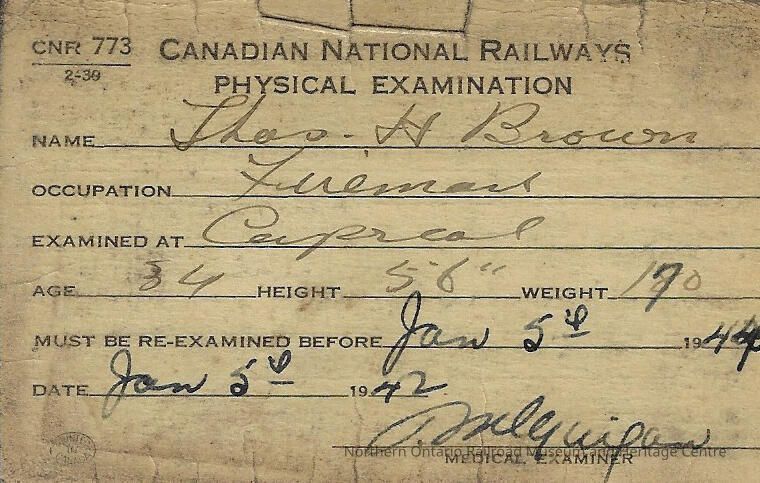 CNR 773
2-39
CANADIAN NATIONAL RAILWAYS
PHYSICAL EXAMINATION
NAME Thos. H Brown
OCCUPATION Fireman
EXAMINED AT Capreol
AGE 34 HEIGHT 5 6" WEIGHT 170
MUST BE RE-EXAMINED BEFORE Jan 5th 1944
DATE Jan 5th 1942
Northern Ontario Railroad Museum and Heritage Centre
MEDICAL EXAMINER